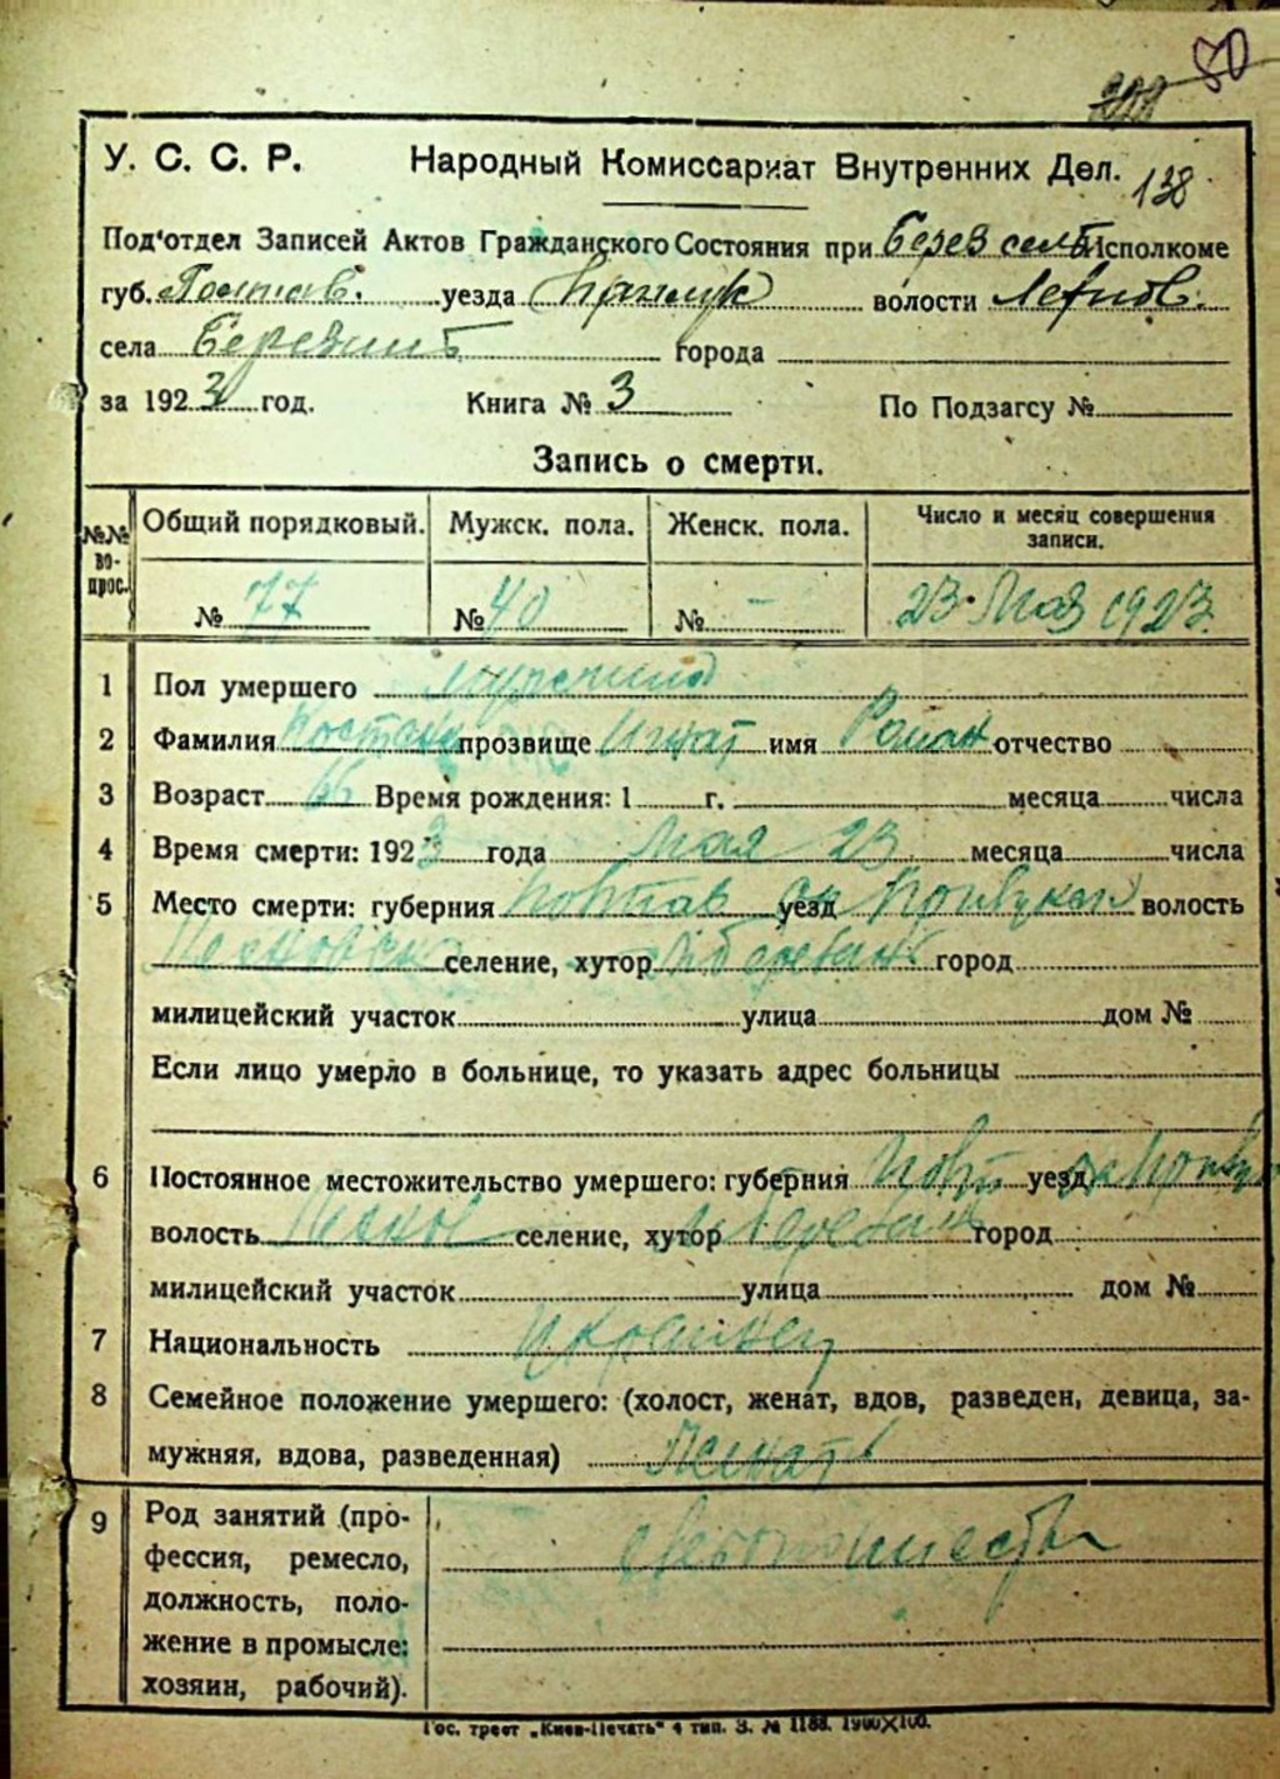 80
138
У. С. С. Р. Народный Комиссариат Внутренних Дел.
Под'отдел Записей Актов Гражданского Состояния при Берез Исполкоме
губ. Полтав. уезда Прилук волости
села города
за 1923 год. Книга № 3 По Подзагсу №
Запись о смерти.
№№ вопрос. Общий порядковый. Мужск. пола. Женск. пола. Число и месяц совершения записи.
№ 77 № 40 № - 23 Мая 1923
1 Пол умершего мужской
2 Фамилия прозвище Игнат имя Роман отчество
3 Возраст 66 Время рождения: 1 г. месяца числа
4 Время смерти: 1923 года Мая 23 месяца числа
5 Место смерти: губерния Полтав уезд волость
селение, хутор город
милицейский участок улица дом №
Если лицо умерло в больнице, то указать адрес больницы
6 Постоянное местожительство умершего: губерния Полт уезд
волость селение, хутор город
милицейский участок улица дом №
7 Национальность Украинец
8 Семейное положение умершего: (холост, женат, вдов, разведен, девица, за-
мужняя, вдова, разведенная) Женат
9 Род занятий (про-
фессия, ремесло,
должность, поло-
жение в промысле:
хозяин, рабочий).
Гос. трест „Киев-Печать" 4 тип. З. № 1188. 1900×100.